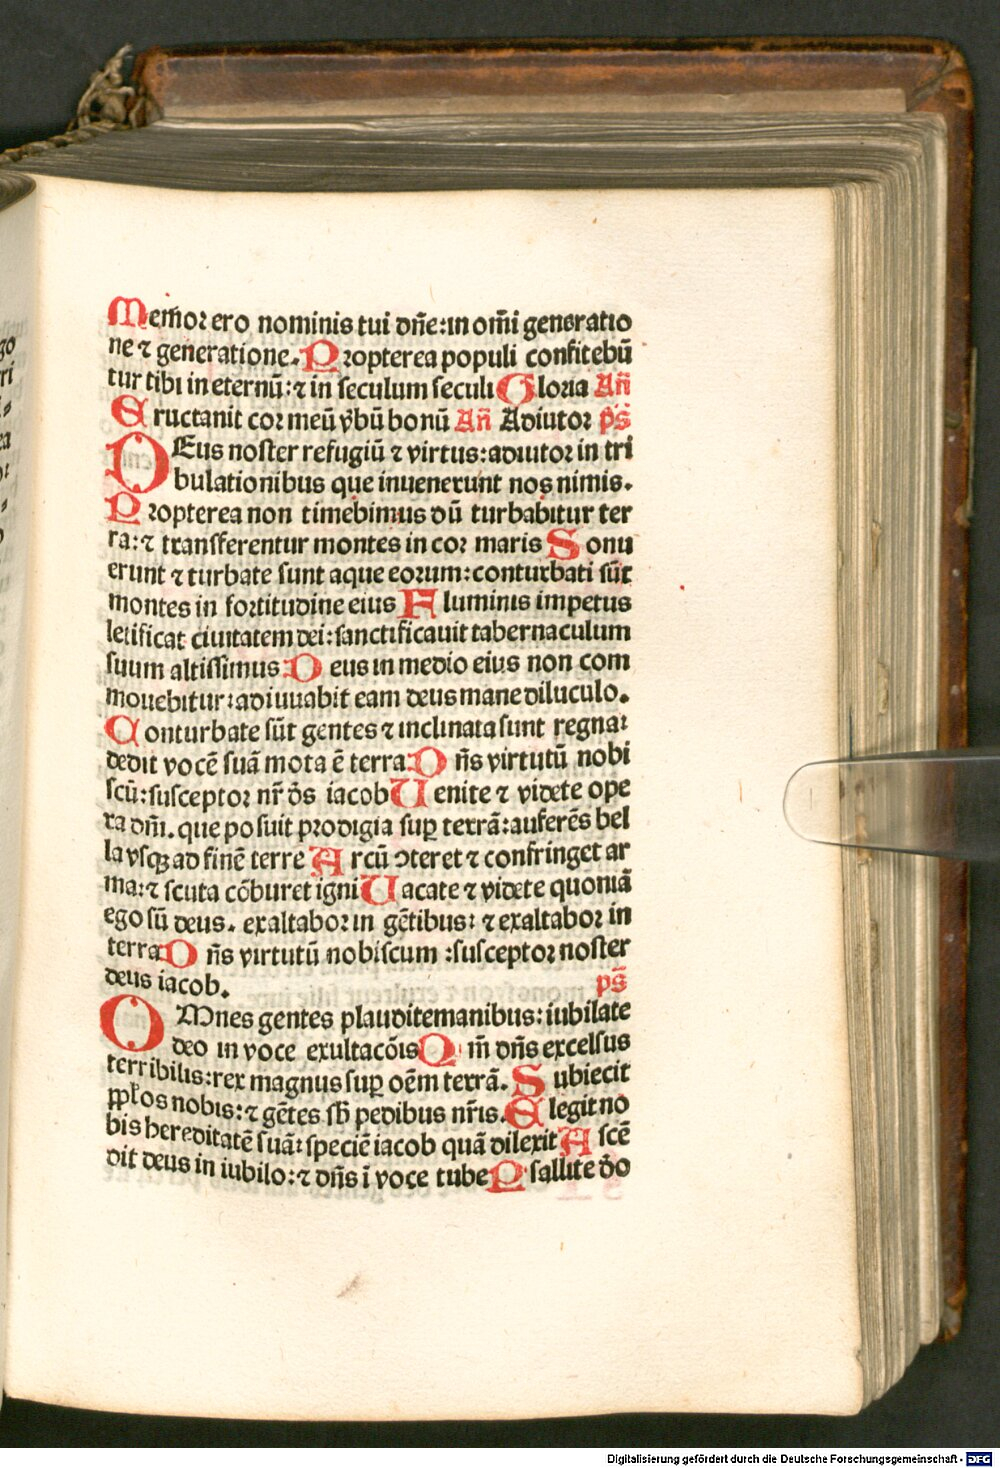 Mem̃or ero nominis tui dñe: in om̃i generatio
ne ⁊ generatione. Propterea populi confitebũ
tur tibi in eternũ: ⁊ in seculum seculi Gloria Añ
Eructauit cor meũ v̾bũ bonũ Añ Adiutor ps̃
DEus noster refugiũ ⁊ virtus: adiutor in tri
bulationibus que inuenerunt nos nimis.
Propterea non timebimus dũ turbabitur ter
ra: ⁊ transferentur montes in cor maris Sonu
erunt ⁊ turbate sunt aque eorum: conturbati sũt
montes in fortitudine eius Fluminis impetus
letificat ciuitatem dei: sanctificauit tabernaculum
suum altissimus Deus in medio eius non com
mouebitur: adiuuabit eam deus mane diluculo.
Conturbate sũt gentes ⁊ inclinata sunt regna:
dedit vocẽ suã mota ẽ terra Dñs virtutũ nobi
scũ: susceptor nr̃ dŝ iacob Uenite ⁊ videte ope
ra dñi. que posuit prodigia suꝑ terrã: auferẽs bel
la vsqꝫ ad finẽ terre Arcũ ↄteret ⁊ confringet ar
ma: ⁊ scuta cõburet igni Uacate ⁊ videte quoniã
ego sũ deus. exaltabor in gẽtibus: ⁊ exaltabor in
terra Dñs virtutũ nobiscum : susceptor noster
deus iacob. ps̃
OMnes gentes plaudite manibus: iubilate
deo in voce exultacõis Qm̃ dñs excelsus
terribilis: rex magnus suꝑ oẽm terrã. Subiecit
ppl̃os nobis: ⁊ gẽtes sb̃ pedibus nr̃is. Elegit no
bis hereditatẽ suã: speciẽ iacob quã dilexit Ascẽ
dit deus in iubilo: ⁊ dñs ĩ voce tube Psallite dõ
Digitalisierung gefördert durch die Deutsche Forschungsgemeinschaft - DFG